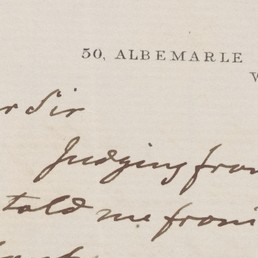 50, ALBEMARLE
W
r Sir
Judging from
told me from